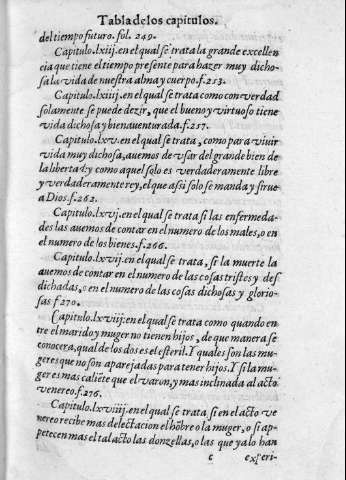 Tabla de los capitulos.
del tiempo futuro. fol. 249.
Capitulo.lxiij.en el qual se trata la grande excellen
cia que tiene el tiempo presente para hazer muy dicho-
sa la vida de nuestra alma y cuerpo.f.253.
Capitulo.lxiiij.en el qual se trata como con verdad
solamente se puede dezir, que el bueno y virtuoso tiene
vida dichosa y bienauenturada.f.257.
Capitulo.lxv.en el qual se trata, como para viuir
vida muy dichosa, auemos de vsar del grande bien de
la libertad:y como aquel solo es verdaderamente libre
y verdaderamente rey, el que assi solo se manda y sirue
a Dios.f.262.
Capitulo.lxvj.en el qual se trata si las enfermeda-
des las auemos de contar en el numero de los males, o en
el numero de los bienes.f.266.
Capitulo.lxvij.en el qual se trata, si la muerte la
auemos de contar en el numero de las cosas tristes y des
dichadas, o en el numero de las cosas dichosas y glorio-
sas f 270.
Capitulo.lxviij:en el qual se trata como quando en
tre el marido y muger no tienen hijos, de que manera se
conocera, qual de los dos es el esteril.Y quales son las mu-
geres que no son aparejadas para tener hijos.Y si la mu-
ger es mas caliẽte que el varon, y mas inclinada al acto
venereo.f.276.
Capitulo.lxviiij.en el qual se trata si en el acto ve
nereo recibe mas delectacion el hõbre o la muger, o si ap-
petecen mas el tal acto las donzellas, o las que ya lo han
c experi-